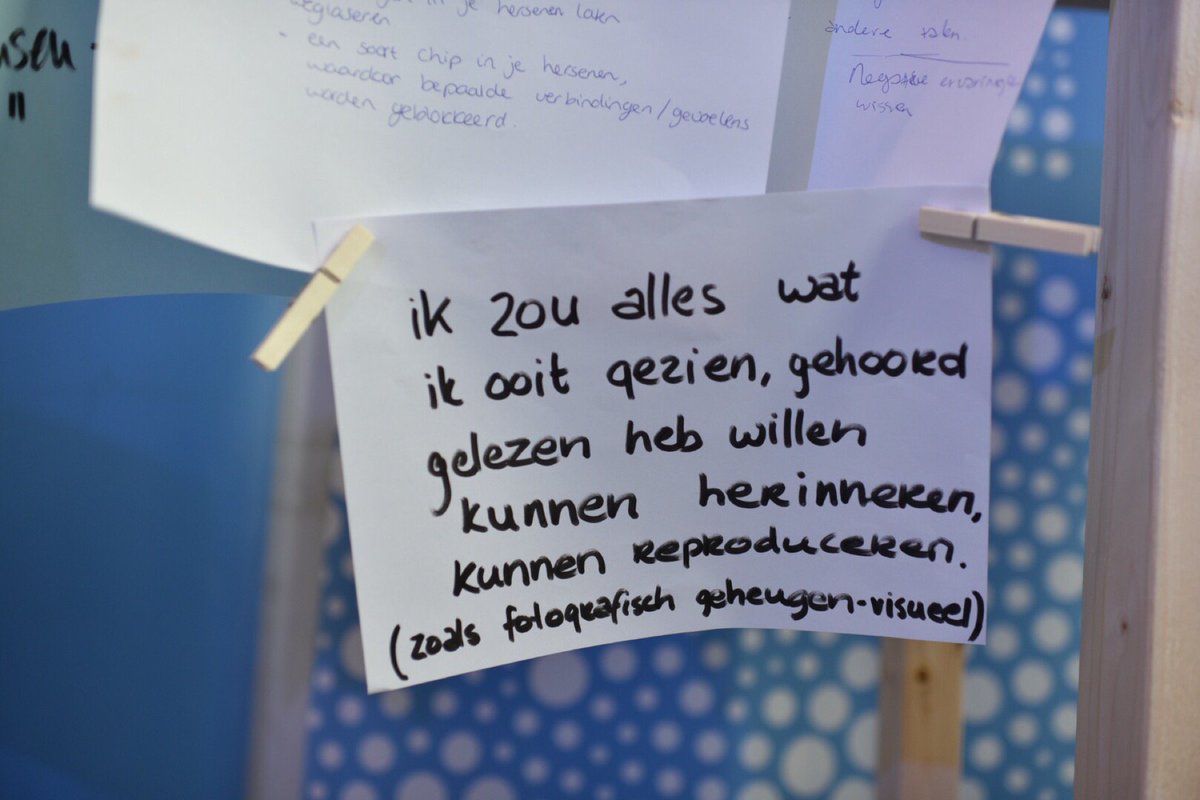 in je hersenen laten
weglaseren
- een soort chip in je hersenen,
waardoor bepaalde verbindingen/gevoelens
worden geblokkeerd.
andere talen
Negatieve ervaringen
wissen
ik zou alles wat
ik ooit gezien, gehoord
gelezen heb willen
kunnen herinneren,
kunnen reproduceren.
(zoals fotografisch geheugen-visueel)